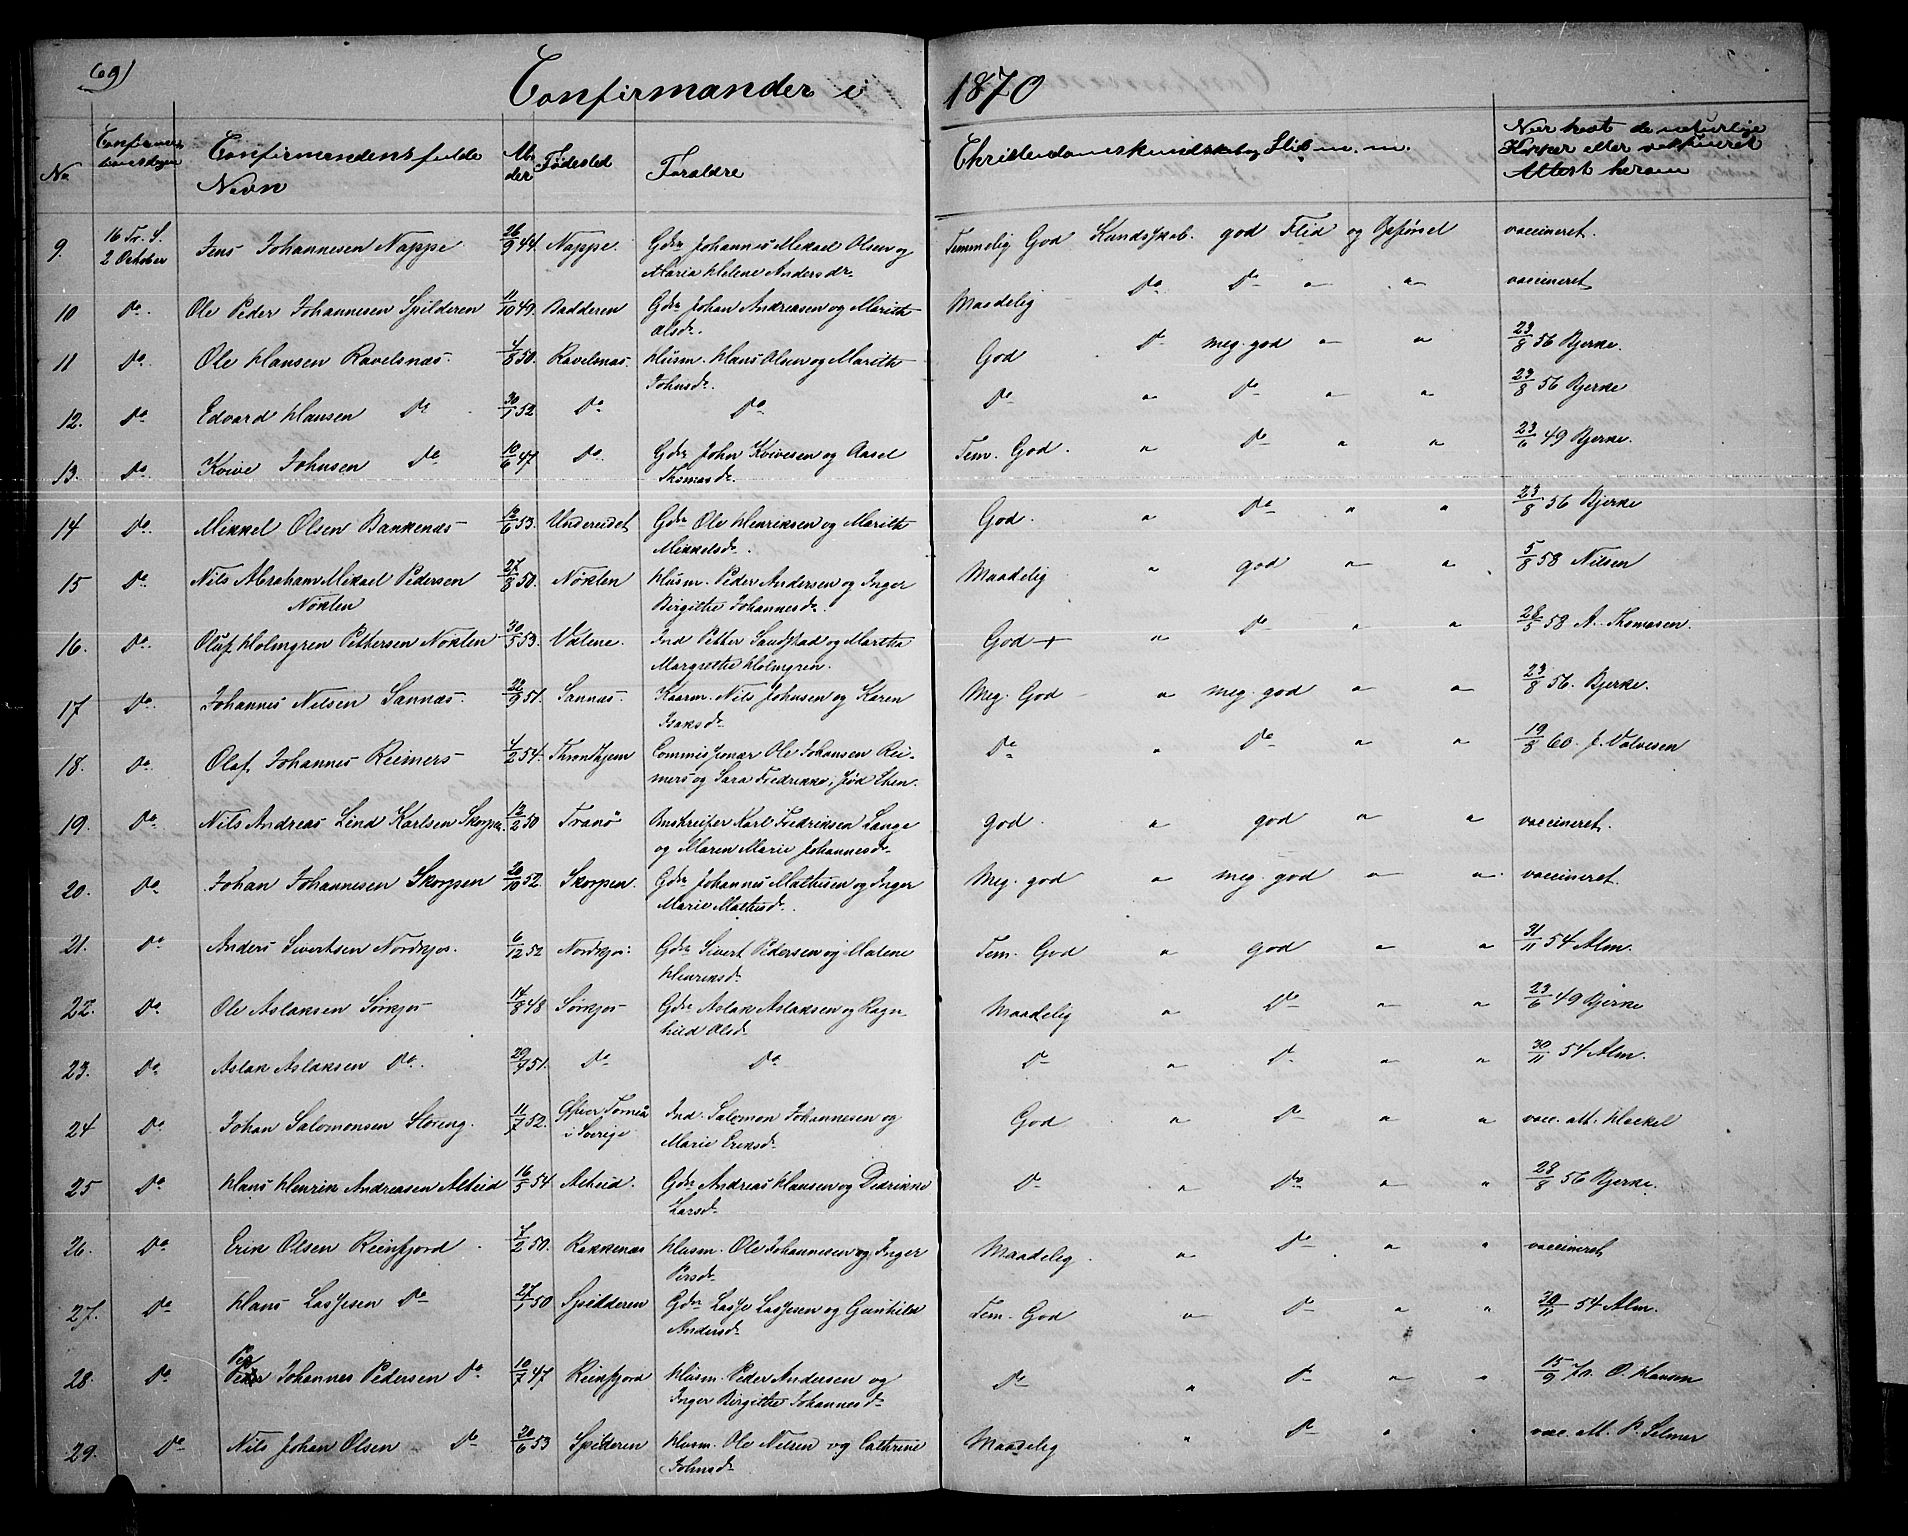 69)
Confirmander i 1870
No
Confirmandens fulde Navn
Alder
Fødested
Forældre
Christendomskundskab og Flid m. m.
Naar havt de naturlige Kopper eller vakcineret Attest herom
9. 16 Tr. S. 2 October Jens Johannesen Nappe 26/9 44. Nappe. Gdm Johannes Mikael Olsen og Temmelig God Kundskab. god Flid og Opførsel vaccineret.
Maria Helene Andersdr
10 Do. Ole Peder Johannesen Spilderen 11/10 49. Badderen Gdm Johan Andreasen og Marith Maadelig Do Do " " vaccineret
Olsdr.
11 Do. Ole Hansen Ravelsnæs 4/8 50. Ravelsnæs. Husm. Hans Olsen og Marith God Do meg. god " " 23/8 56 Bjerke.
Johnsdr.
12. Do Edvard Hansen Do 30/1 52. Do Do Do " Do " " 23/8 56 Bjerke
13. Do Kvive Johnsen Do 10/6 47 Do. Gdm John Kvivesen og Aasel Tem. God. " Do " " 23/6 49 Bjerke.
Thomasdr.
14 Do. Mikkel Olsen Bankenæs 12/6 53. Undereidet Gdm Ole Henriksen og Marith God. " Do " " 23/8 56 Bjerke
Mikkelsdr.
15 Do. Nils Abraham Mikael Pedersen 27/8 50. Noklen Husm. Peder Andersen og Inger Maadelig " god " " 5/8 58 Nilsen
Noklen Birgithe Johannesdr.
16. Do. Oluf Holmgren Pettersen Noklen 30/5 53. Valene. Ind Petter Sandstad og Martha God + " Do " " 28/5 58 A. Thomasen.
Margrethe Holmgren.
17 Do. Johannes Nilsen Sannæs. 22/9 51. Sannæs. Kaarm. Nils Johnsen og Karen Meg. God " meg. god " " 23/8 56. Bjerke.
Isaksdr
18. Do. Olaf Johannes Reimers 4/2 54. Thronhjem Commissionær Ole Johansen Rei- Do " Do " " 19/8 60. J. Valvesen
mers og Sara Fredrikke, fød
19. Do Nils Andreas Lind Karlsen Skorpen. 12/2 50 Tranø Karl Fredriksen Lange god. " god " " vaccineret.
og Maren Marie Johannesdr
20. Do Johan Johannesen Skorpen 20/10 52. Skorpen. Gdm Johannes Mathisen og Inger Meg. god " meg. god " " vaccineret.
Marie Mathisdr.
21. Do Anders Sivertsen Nordkjos. 6/12 52 Nordkjos: Gdm Sivert Pedersen og Malene Tem. God " god " " 31/11 54 Alm.
Henriksdr
22. Do Ole Aslaksen Sørkjos 14/8 48 Sørkjos Gdm Aslak Aslaksen og Ragn- Maadelig " Do " " 23/6 49 Bjerke
hild Olsdr
23. Do Aslak Aslaksen Do. 29/9 51. Do Do Do " Do " " 30/11 54 Alm.
24 Do Johan Salomonsen Storeng. 11/7 52. Øfver Torneå i Sverige Ind. Salomon Johannesen og God " Do " " vacc. att. Hockel
Marie Eriksdr.
25 Do Hans Henrik Andreasen Alteid 16/5 54 Alteid. Gdm Andreas Hansen og Dedrikke Do " Do " " 28/8 56 Bjerke.
Larsdr
26. Do Erik Olsen Reinfjord 4/2 50. Kakkenæs Husm. Ole Johannesen og Inger Maadelig " Do " " vaccineret
Persdr
27. Do Hans Lassesen Do 27/1 50 Spilderen Gdm Lasse Lassesen og Gunhild Tem. God " Do " " 30/11 54 Alm.
Andersdr
28. Do Johannes Pedersen Do 10/7 47 Reinfjord Husm. Peder Andersen og Do " Do " " 15/9 70. O. Hansen
Inger Birgithe Johannesdr
29. Do Nils Johan Olsen Do 20/6 53 Spilderen Husm. Ole Nilsen og Cathrine Maadelig " Do " " vac. att. P. Selmer
Johnsdr